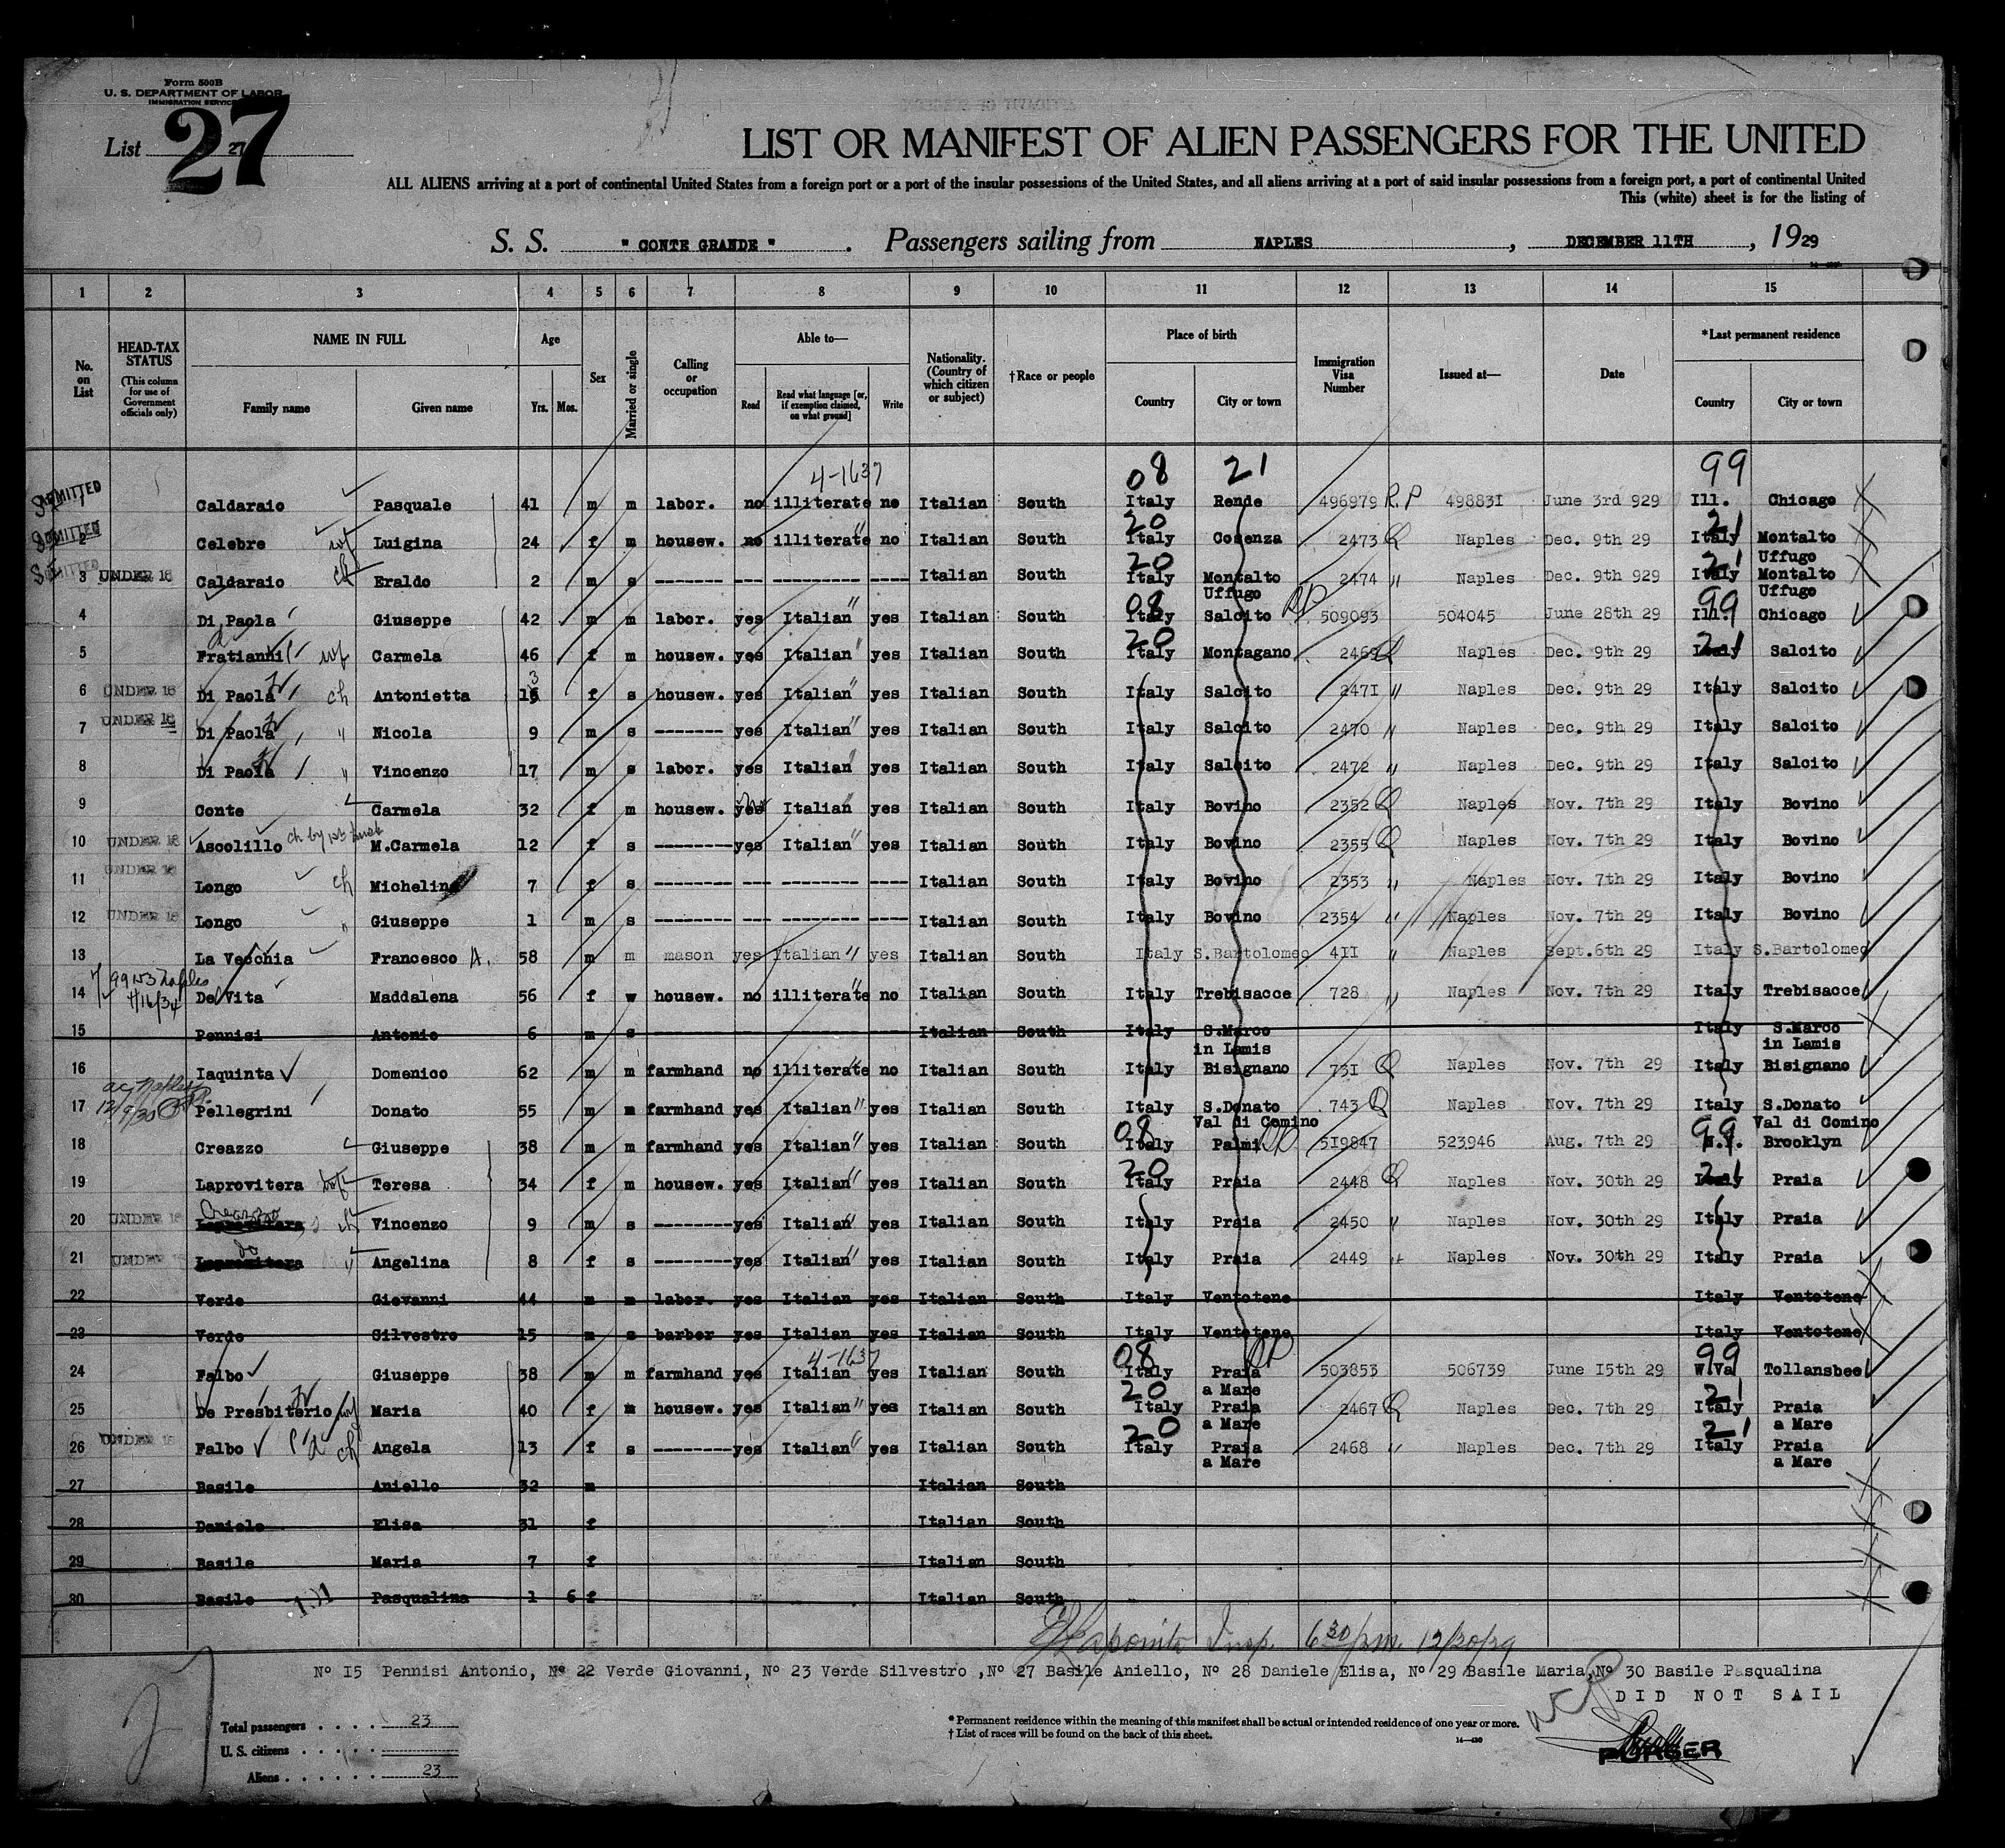 Form 500B
U. S. DEPARTMENT OF LABOR
IMMIGRATION SERVICE
List 27
27
LIST OR MANIFEST OF ALIEN PASSENGERS FOR THE UNITED
ALL ALIENS arriving at a port of continental United States from a foreign port or a port of the insular possessions of the United States, and all aliens arriving at a port of said insular possessions from a foreign port, a port of continental United
This (white) sheet is for the listing of
S. S. " CONTE GRANDE " . Passengers sailing from NAPLES , DECEMBER 11TH , 1929
1 2 3 4 5 6 7 8 9 10 11 12 13 14 15
No. on List
HEAD-TAX STATUS (This column for use of Government officials only)
NAME IN FULL
Family name Given name
Age
Yrs. Mos.
Sex
Married or single
Calling or occupation
Able to—
Read Read what language [or, if exemption claimed, on what ground] Write
Nationality. (Country of which citizen or subject)
†Race or people
Place of birth
Country City or town
Immigration Visa Number
Issued at—
Date
*Last permanent residence
Country City or town
4-1637 08 21 99
ADMITTED 1 Caldaraio Pasquale 41 m m labor. no illiterate no Italian South Italy Rende 496979 R.P 498831 June 3rd 929 Ill. Chicago
20 21
ADMITTED 2 Celebre wf Luigina 24 f m housew. no illiterate no Italian South Italy Cosenza 2473 Q Naples Dec. 9th 29 Italy Montalto Uffugo
20 21
ADMITTED 3 UNDER 16 Caldaraio ch Eraldo 2 m s Italian South Italy Montalto Uffugo 2474 " Naples Dec. 9th 929 Italy Montalto Uffugo
08 99
4 Di Paola Giuseppe 42 m m labor. yes Italian yes Italian South Italy Salcito RP 509093 504045 June 28th 29 Ill. Chicago
20 21
5 Fratianni wf Carmela 46 f m housew. yes Italian yes Italian South Italy Montagano 2469 Q Naples Dec. 9th 29 Italy Salcito
6 UNDER 16 Di Paola ch Antonietta 16 3 f s housew. yes Italian yes Italian South Italy Salcito 2471 " Naples Dec. 9th 29 Italy Salcito
7 UNDER 16 Di Paola " Nicola 9 m s yes Italian yes Italian South Italy Salcito 2470 " Naples Dec. 9th 29 Italy Salcito
8 Di Paola " Vincenzo 17 m s labor. yes Italian yes Italian South Italy Salcito 2472 " Naples Dec. 9th 29 Italy Salcito
9 Conte Carmela 32 f m housew. yes Italian yes Italian South Italy Bovino 2352 Q Naples Nov. 7th 29 Italy Bovino
10 UNDER 16 Ascolillo ch by 1st husb M.Carmela 12 f s yes Italian yes Italian South Italy Bovino 2355 Q Naples Nov. 7th 29 Italy Bovino
11 UNDER 16 Longo ch Michelina 7 f s Italian South Italy Bovino 2353 " Naples Nov. 7th 29 Italy Bovino
12 UNDER 16 Longo " Giuseppe 1 m s Italian South Italy Bovino 2354 " Naples Nov. 7th 29 Italy Bovino
13 La Vecchia Francesco A. 58 m m mason yes Italian yes Italian South Italy S.Bartolomeo 411 " Naples Sept.6th 29 Italy S.Bartolomeo
14 4/16/34 De Vita Maddalena 56 f w housew. no illiterate no Italian South Italy Trebisacce 728 " Naples Nov. 7th 29 Italy Trebisacce
15 Pennisi Antonio 6 m s Italian South Italy S.Marco in Lamis Italy S.Marco in Lamis
16 Iaquinta Domenico 62 m m farmhand no illiterate no Italian South Italy Bisignano 731 Q Naples Nov. 7th 29 Italy Bisignano
17 12/9/30 Pellegrini Donato 55 m m farmhand yes Italian yes Italian South Italy S.Donato Val di Comino 743 Q Naples Nov. 7th 29 Italy S.Donato Val di Comino
08 99
18 Creazzo Giuseppe 38 m m farmhand yes Italian yes Italian South Italy Palmi RP 519847 523946 Aug. 7th 29 N.Y. Brooklyn
20 21
19 Laprovitera wf Teresa 34 f m housew. yes Italian yes Italian South Italy Praia 2448 Q Naples Nov. 30th 29 Italy Praia
20 UNDER 16 Creazzo Laprovitera ch Vincenzo 9 m s yes Italian yes Italian South Italy Praia 2450 " Naples Nov. 30th 29 Italy Praia
21 UNDER do Laprovitera " Angelina 8 f s yes Italian yes Italian South Italy Praia 2449 " Naples Nov. 30th 29 Italy Praia
22 Verde Giovanni 44 m m labor. yes Italian yes Italian South Italy Ventotene Italy Ventotene
23 Verde Silvestro 15 m s barber yes Italian yes Italian South Italy Ventotene Italy Ventotene
4-1637 08 99
24 Falbo Giuseppe 38 m m farmhand yes Italian yes Italian South Italy Praia a Mare RP 503853 506739 June 15th 29 W.Va Tollansbee
20 21
25 De Presbiterio wf Maria 40 f m housew. yes Italian yes Italian South Italy Praia a Mare 2467 Q Naples Dec. 7th 29 Italy Praia a Mare
20 21
26 UNDER 16 Falbo ch Angela 13 f s yes Italian yes Italian South Italy Praia a Mare 2468 " Naples Dec. 7th 29 Italy Praia a Mare
27 Basile Aniello 32 m Italian South
28 Daniele Elisa 31 f Italian South
29 Basile Maria 7 f Italian South
30 Basile Pasqualina 1 6 f Italian South
Insp. 6 30 pm. 12/20/29
Nº 15 Pennisi Antonio, Nº 22 Verde Giovanni, Nº 23 Verde Silvestro ,Nº 27 Basile Aniello, Nº 28 Daniele Elisa, Nº 29 Basile Maria,Nº 30 Basile Pasqualina
DID NOT SAIL
27
Total passengers . . . . 23
U. S. citizens . . . . .
Aliens . . . . . . 23
* Permanent residence within the meaning of this manifest shall be actual or intended residence of one year or more.
† List of races will be found on the back of this sheet.
14—430
PURSER